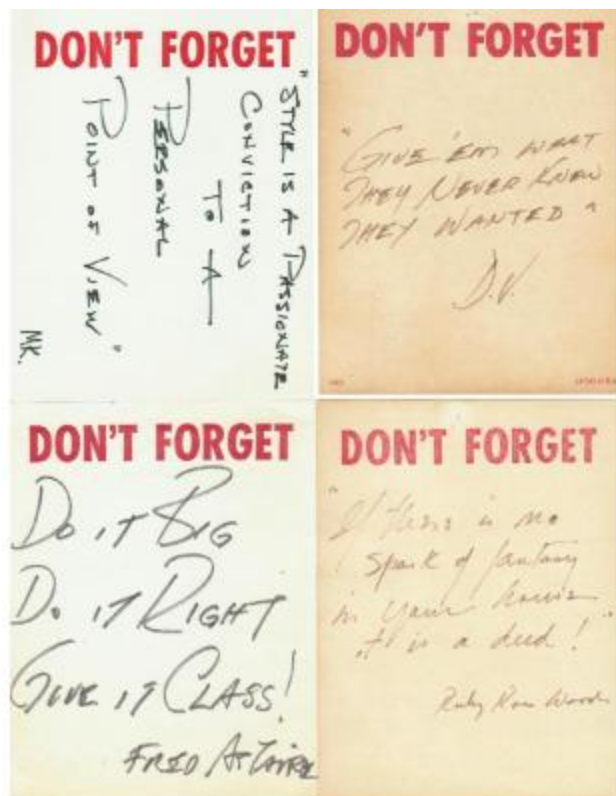 DON'T FORGET
"STYLE IS A PASSIONATE
CONVICTION
TO A
PERSONAL
POINT OF VIEW"
MK.
DON'T FORGET
"GIVE 'EM WHAT
THEY NEVER KNEW
THEY WANTED"
D.V.
DON'T FORGET
DO IT BIG
DO IT RIGHT
GIVE IT CLASS!
FRED ASTAIRE
DON'T FORGET
"If there is no
spark of fantasy
in your house
it is a dud!"
Ruby Ross Wood